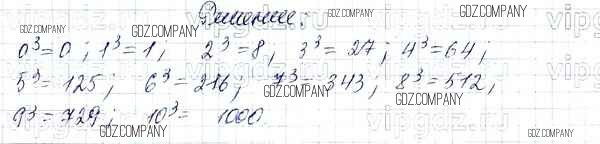 Решение.
0³=0; 1³=1; 2³=8; 3³=27; 4³=64;
5³=125; 6³=216; 7³=343; 8³=512;
9³=729; 10³=1000.
GDZ.COMPANY
GDZ.COMPANY
GDZ.COMPANY
GDZ.COMPANY
GDZ.COMPANY
GDZ.COMPANY
GDZ.COMPANY
GDZ.COMPANY
GDZ.COMPANY
vipgdz.ru
vipgdz.ru
vipgdz.ru